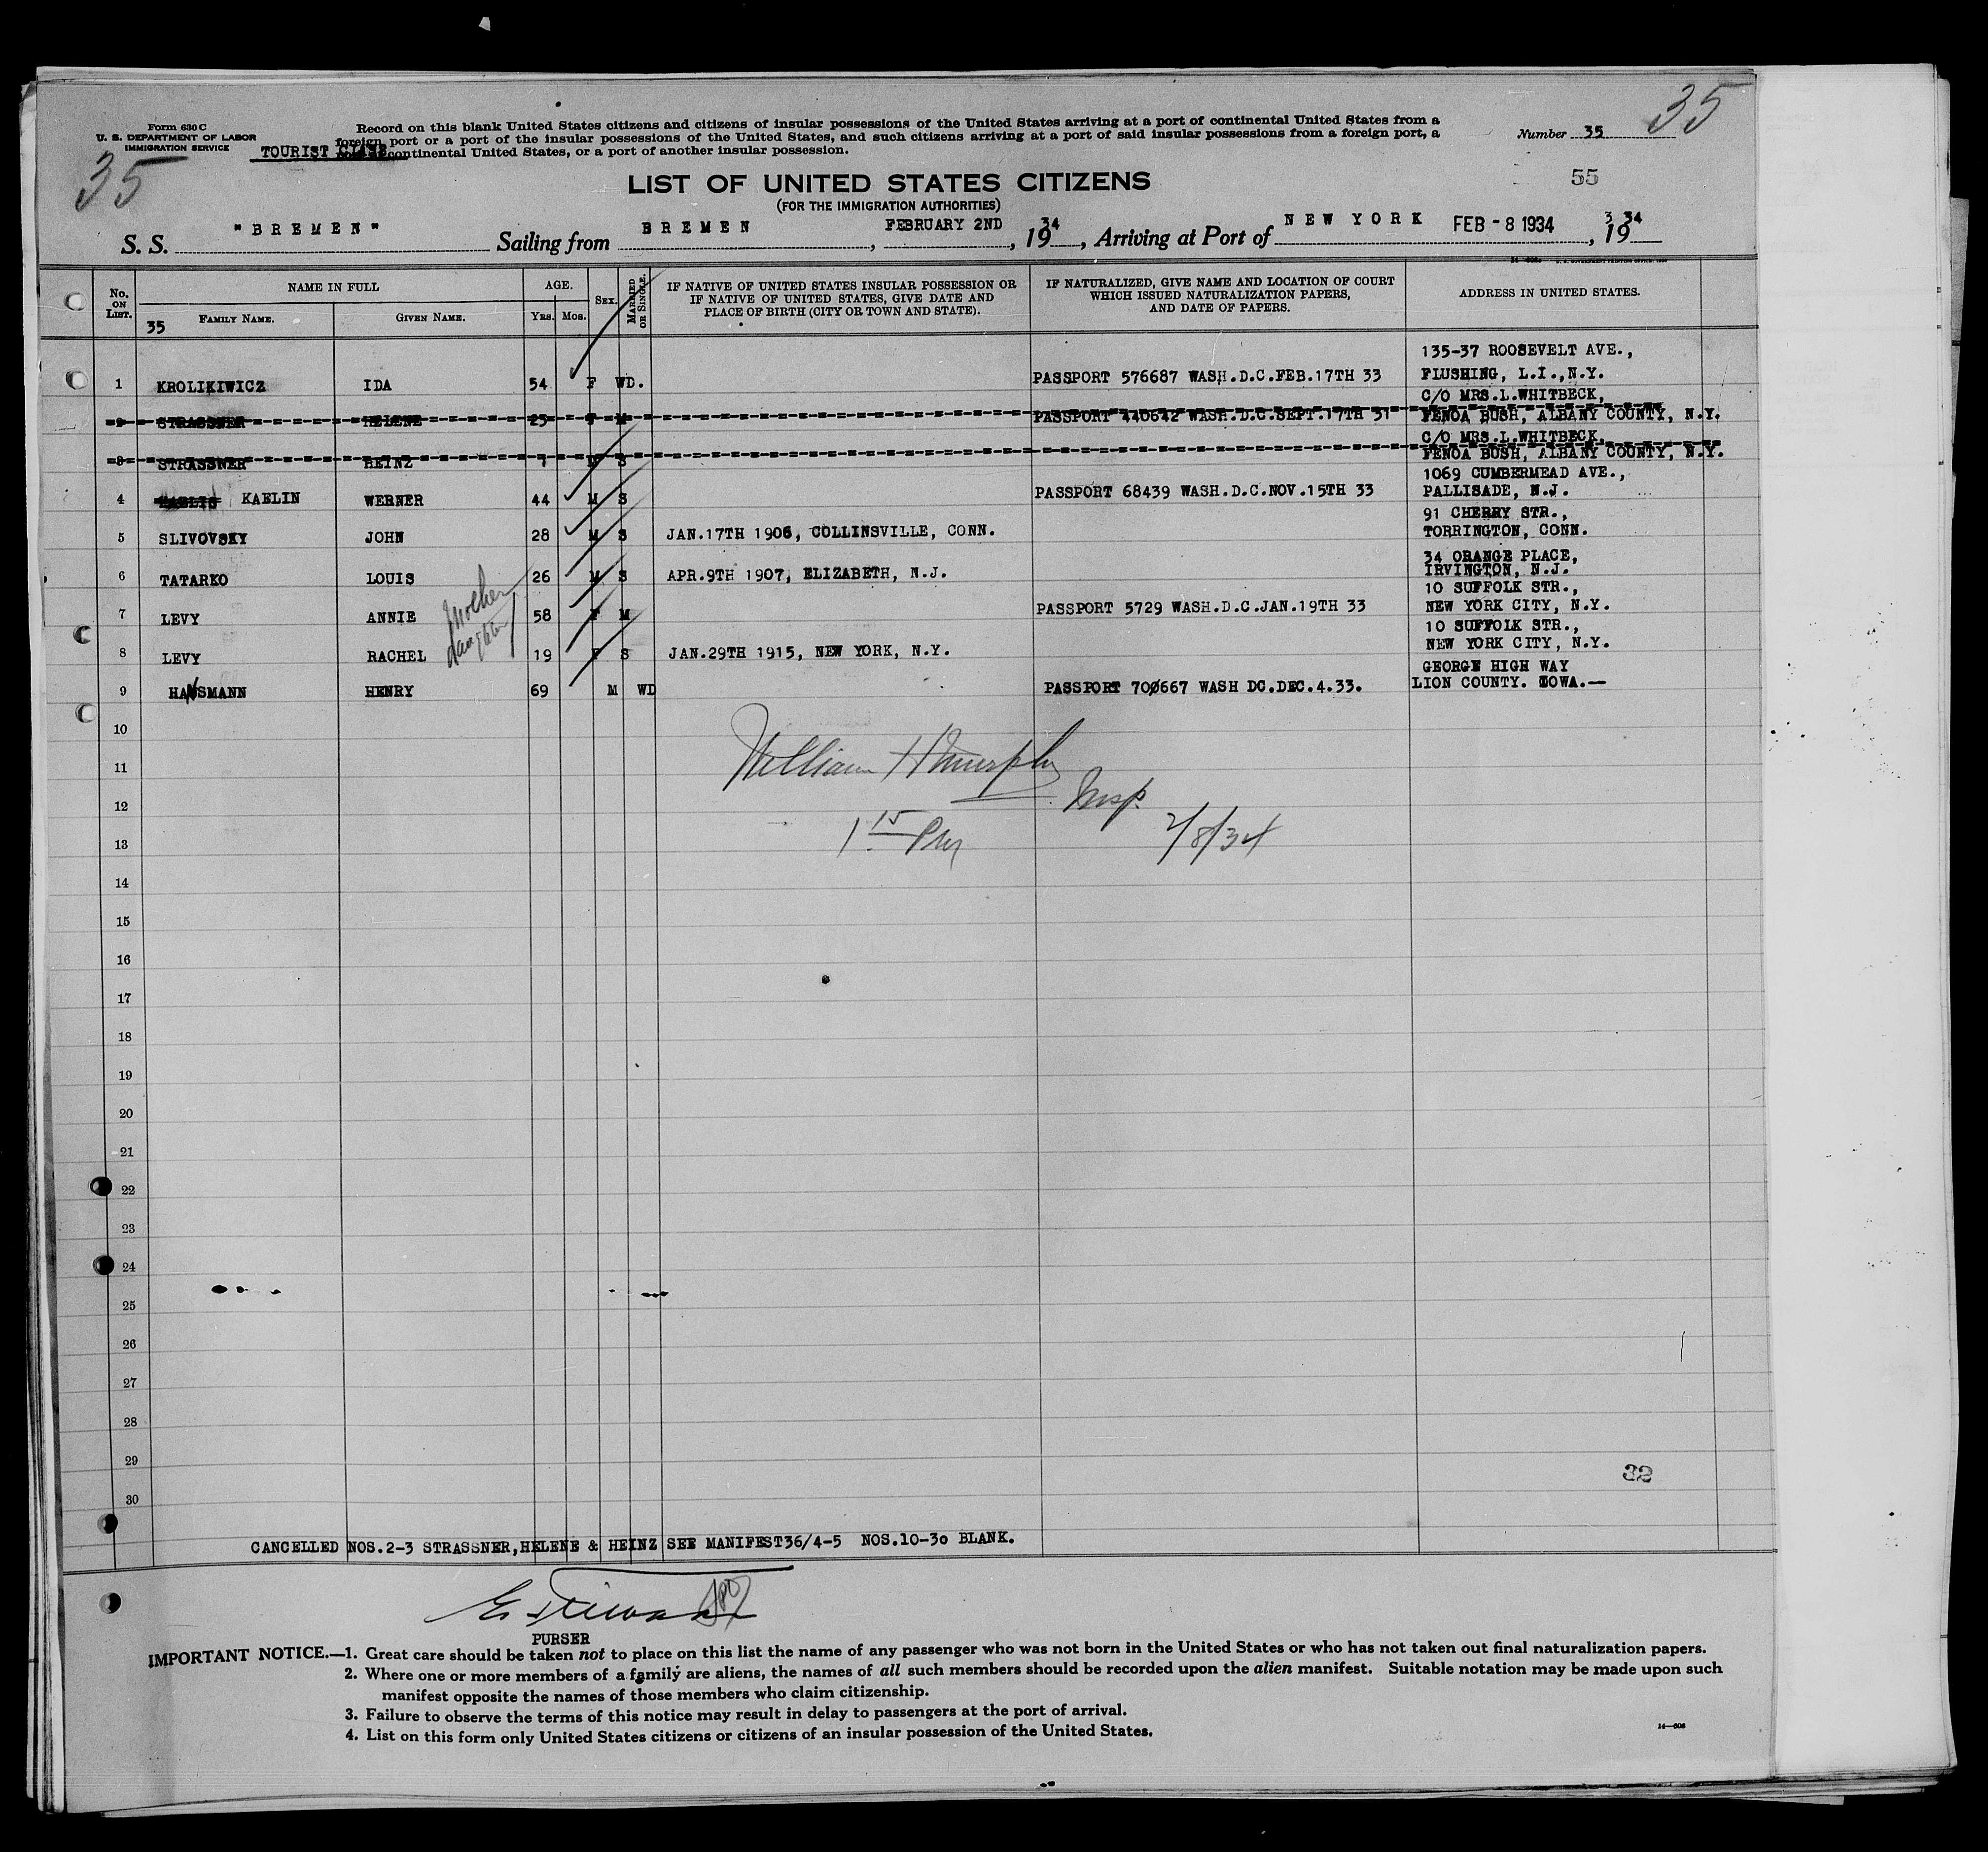 35
Form 630 C
U. S. DEPARTMENT OF LABOR
IMMIGRATION SERVICE
TOURIST CLASS
35
Record on this blank United States citizens and citizens of insular possessions of the United States arriving at a port of continental United States from a
foreign port or a port of the insular possessions of the United States, and such citizens arriving at a port of said insular possessions from a foreign port, a
continental United States, or a port of another insular possession.
Number 35
55
LIST OF UNITED STATES CITIZENS
(FOR THE IMMIGRATION AUTHORITIES)
S. S. "BREMEN" Sailing from BREMEN, FEBRUARY 2ND, 1934, Arriving at Port of NEW YORK FEB - 8 1934, 3 1934
No. ON LIST.
NAME IN FULL
35 FAMILY NAME. GIVEN NAME.
AGE. YRS. MOS.
SEX.
MARRIED OR SINGLE.
IF NATIVE OF UNITED STATES INSULAR POSSESSION OR
IF NATIVE OF UNITED STATES, GIVE DATE AND
PLACE OF BIRTH (CITY OR TOWN AND STATE).
IF NATURALIZED, GIVE NAME AND LOCATION OF COURT
WHICH ISSUED NATURALIZATION PAPERS,
AND DATE OF PAPERS.
ADDRESS IN UNITED STATES.
135-37 ROOSEVELT AVE.,
1 KROLIKIWICZ IDA 54 F WD. PASSPORT 576687 WASH.D.C.FEB.17TH 33 FLUSHING, L.I.,N.Y.
C/O MRS.L.WHITBECK,
2 STRASSNER HELENE 25 F M PASSPORT 440642 WASH.D.C.SEPT.17TH 31 FENOA BUSH, ALBANY COUNTY, N.Y.
C/O MRS.L.WHITBECK,
3 STRASSNER HEINZ S FENOA BUSH, ALBANY COUNTY, N.Y.
1069 CUMBERMEAD AVE.,
4 KAELIN WERNER 44 M S PASSPORT 68439 WASH.D.C.NOV.15TH 33 PALLISADE, N.J.
91 CHERRY STR.,
5 SLIVOVSKY JOHN 28 M S JAN.17TH 1906, COLLINSVILLE, CONN. TORRINGTON, CONN.
34 ORANGE PLACE,
6 TATARKO LOUIS 26 M S APR.9TH 1907, ELIZABETH, N.J. IRVINGTON, N.J.
10 SUFFOLK STR.,
7 LEVY ANNIE Mother 58 F M PASSPORT 5729 WASH.D.C.JAN.19TH 33 NEW YORK CITY, N.Y.
10 SUFFOLK STR.,
8 LEVY RACHEL daughter 19 F S JAN.29TH 1915, NEW YORK, N.Y. NEW YORK CITY, N.Y.
GEORGE HIGH WAY
9 HANSMANN HENRY 69 M WD PASSPORT 700667 WASH DC.DEC.4.33. LION COUNTY. IOWA.—
10
11 William H Murphy
12 Insp.
13 1 15 PM 2/8/34
14
15
16
17
18
19
20
21
22
23
24
25
26
27
28
29
32
30
CANCELLED NOS.2-3 STRASSNER,HELENE & HEINZ SEE MANIFEST36/4-5 NOS.10-30 BLANK.
PURSER
IMPORTANT NOTICE.—1. Great care should be taken not to place on this list the name of any passenger who was not born in the United States or who has not taken out final naturalization papers.
2. Where one or more members of a family are aliens, the names of all such members should be recorded upon the alien manifest. Suitable notation may be made upon such
manifest opposite the names of those members who claim citizenship.
3. Failure to observe the terms of this notice may result in delay to passengers at the port of arrival.
4. List on this form only United States citizens or citizens of an insular possession of the United States.